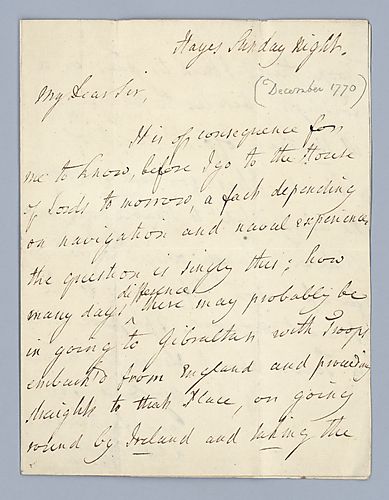 Hayes Sunday Night.
(December 1770)
My Dear Sir,
It is of consequence for
me to know, before I go to the House
of Lords to morrow, a fact depending
on navigation and naval experience
the question is singly this; how
many days difference there may probably be
in going to Gibraltar with Troops
embark'd from England and proceeding
straights to that Place, or going
round by Ireland and taking the